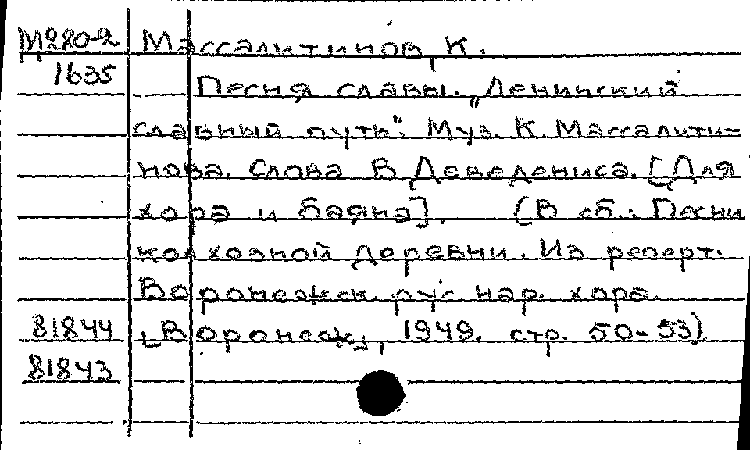 М280-2 Массалитинов, К.
1635 Песня славы. „Ленинский
славный путь". Муз. К. Массалити-
нова. Слова В. Деведениса. [Для
хора и баяна]. (В сб.: Песни
колхозной деревни. Из реперт.
Воронежск. рус. нар. хора.
81844 [Воронеж], 1949. стр. 50-53)
81843